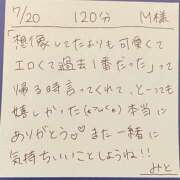 7/20 120分 M様
「想像してたよりも可愛くて
エロくて過去1番だった」って
帰る時言ってくれて、とっても
嬉しかった(*´`*)本当に
ありがとう♡また一緒に
気持ちいいことしようね!!
みと